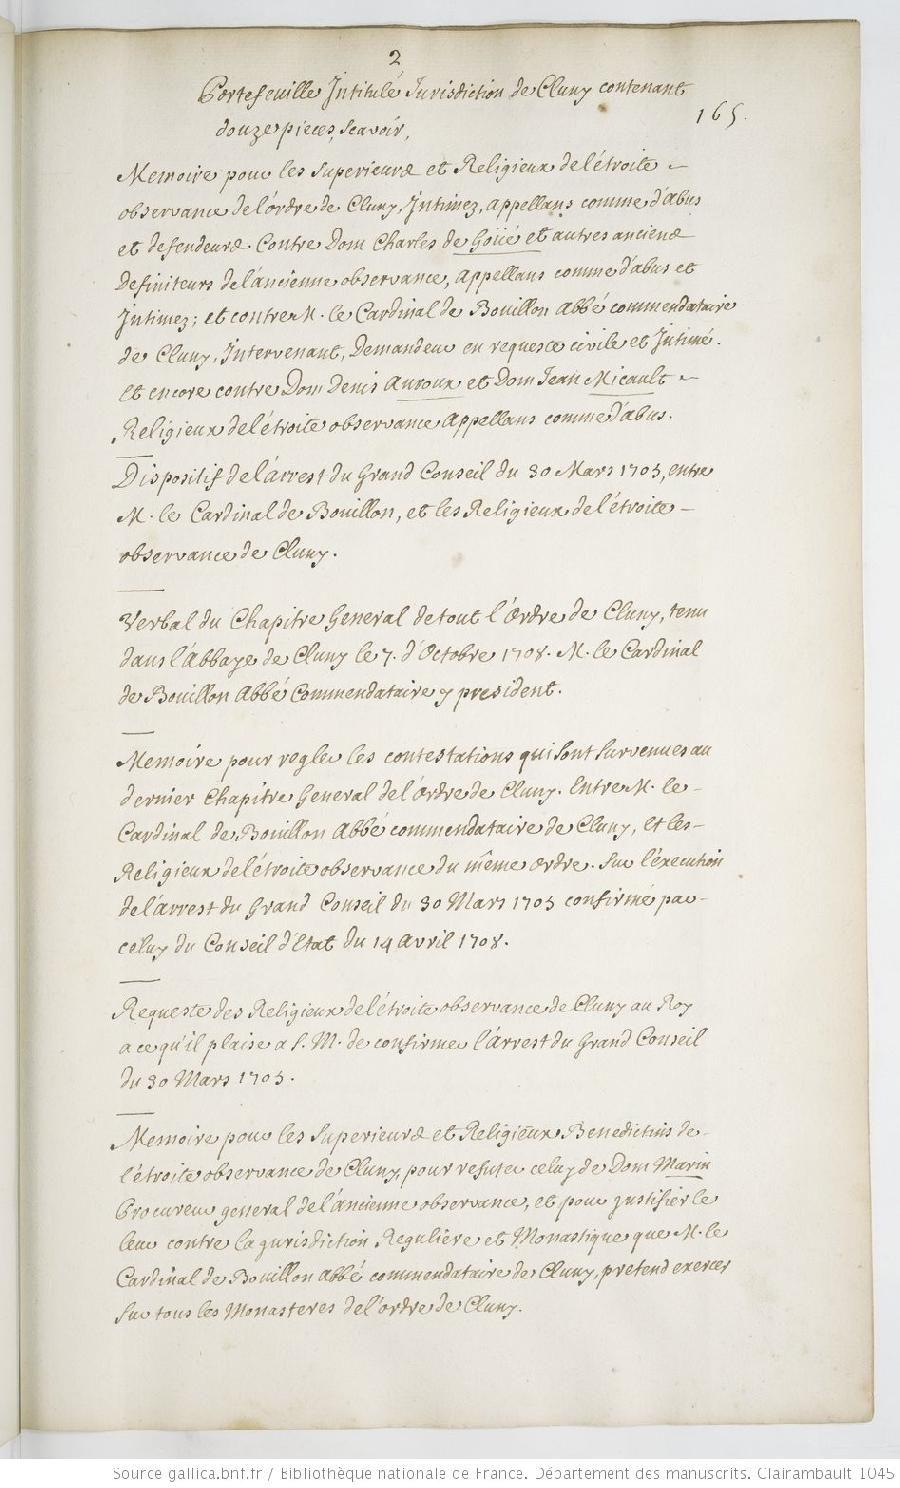 2
Portefeuille Intitulé Jurisdiction de Cluny contenant
165.
douze pieces, scavoir,
Memoire pour les superieurs et Religieux de l'étroite
observance de l'ordre de Cluny, Intimez, appellans comme d'abus
et defendeurs. Contre Dom Charles de Goüé et autres anciens
Definiteurs de l'ancienne observance, appellans comme d'abus et
Intimez; et contre M. le Cardinal de Bouillon Abbé commendataire
de Cluny, Intervenant, Demandeur en requeste civile et Intimé.
Et encore contre Dom Denis Auroux et Dom Jean Micault
Religieux de l'étroite observance appellans comme d'abus.
Dispositif de l'arrest du Grand Conseil du 30 Mars 1705, entre
M. le Cardinal de Bouillon, et les Religieux de l'étroite
observance de Cluny.
Verbal du Chapitre General de tout l'Ordre de Cluny, tenu
dans l'Abbaye de Cluny le 7. d'Octobre 1708. M. le Cardinal
de Bouillon Abbé Commendataire y president.
Memoire pour regler les contestations qui sont survenues au
dernier Chapitre General de l'ordre de Cluny. Entre M. le
Cardinal de Bouillon Abbé commendataire de Cluny, et les
Religieux de l'étroite observance du même ordre. Sur l'execution
de l'arrest du Grand Conseil du 30 Mars 1705 confirmé par
celuy du Conseil d'Etat du 14 avril 1708.
Requeste des Religieux de l'étroite observance de Cluny au Roy
a ce qu'il plaise a S. M. de confirmer l'arrest du Grand Conseil
du 30 Mars 1705.
Memoire pour les superieurs et Religieux Benedictins de
l'étroite observance de Cluny, pour refuter celuy de Dom Marin
Procureur general de l'ancienne observance, et pour justifier le
leur contre la jurisdiction Reguliere et Monastique que M. le
Cardinal de Bouillon abbé commendataire de Cluny, pretend exercer
sur tous les Monasteres de l'ordre de Cluny.
Source gallica.bnf.fr / Bibliothèque nationale de France. Département des manuscrits. Clairambault 1045